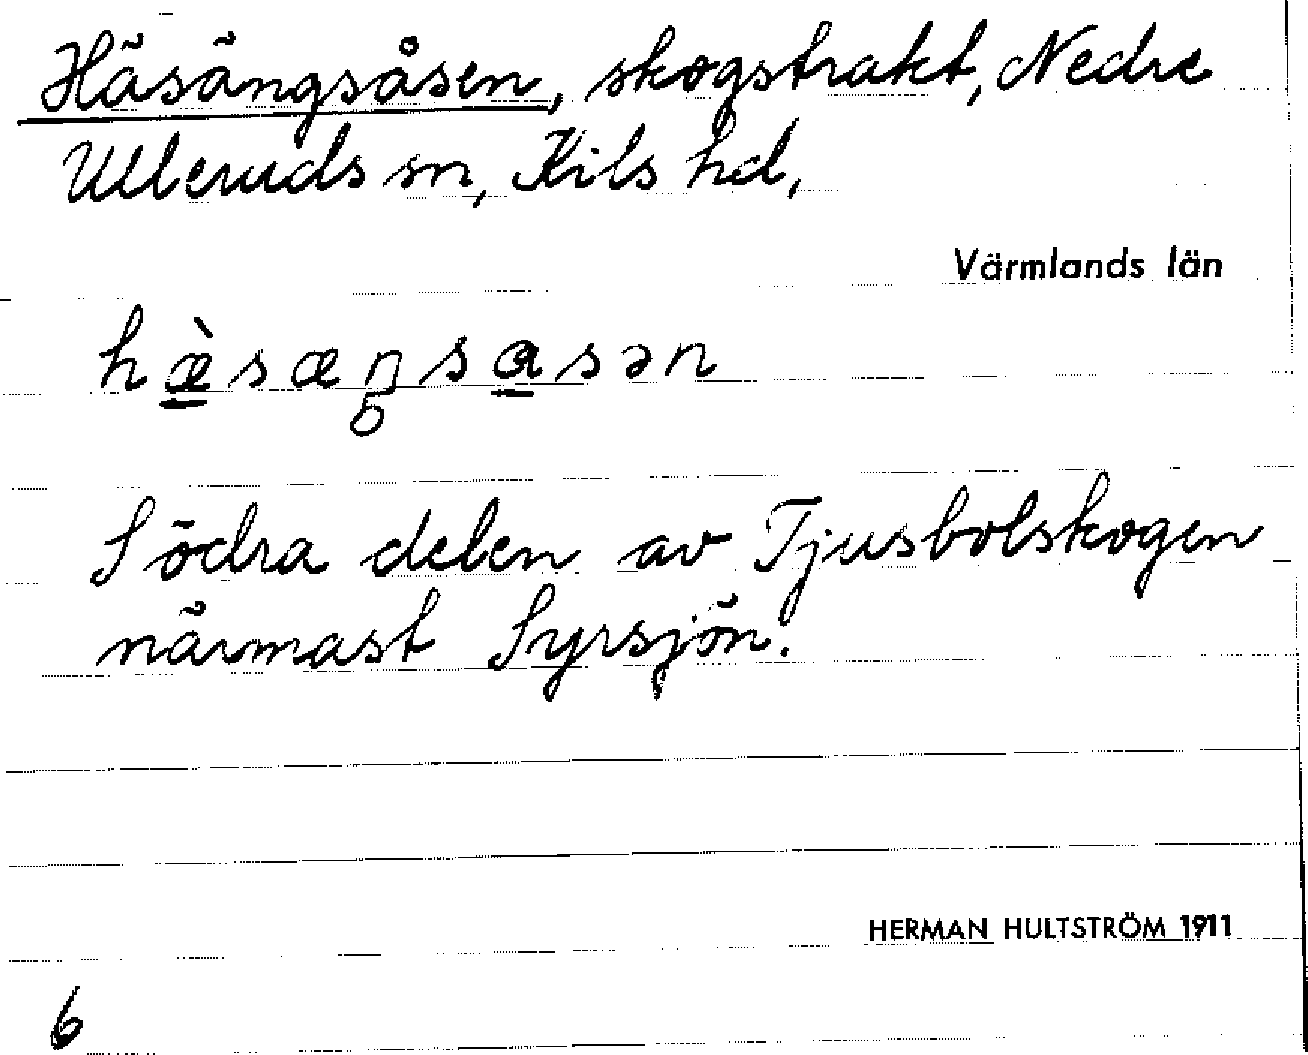 Häsängsåsen, skogstrakt, Nedre
Ulleruds sn, Kils hd,
Värmlands län
hæ̀sæŋsasən
Södra delen av Tjusbolskogen
närmast Syrsjön.
HERMAN HULTSTRÖM 1911
6